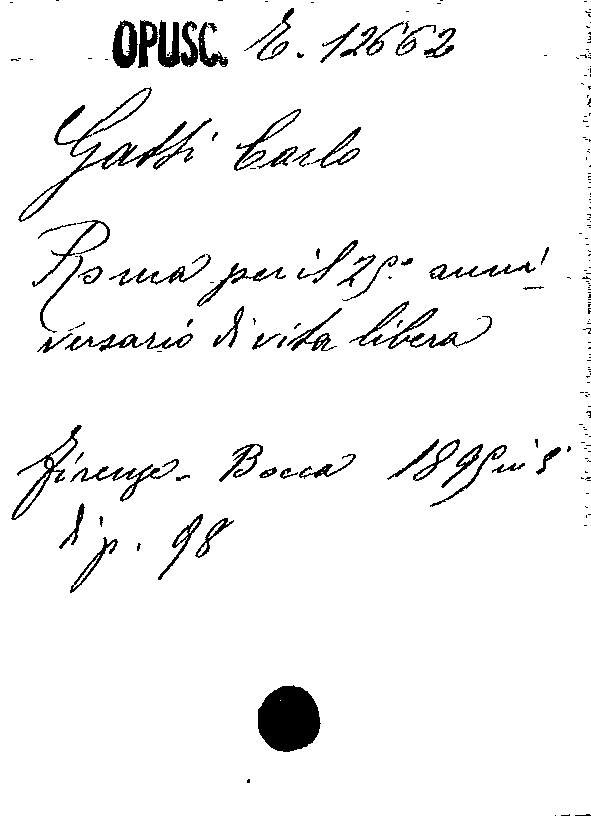 OPUSC. E. 12662
Gatti Carlo
Roma per il 25.° anni
versario di vita libera
Firenze - Bocca 1895 in 8°
di p. 98